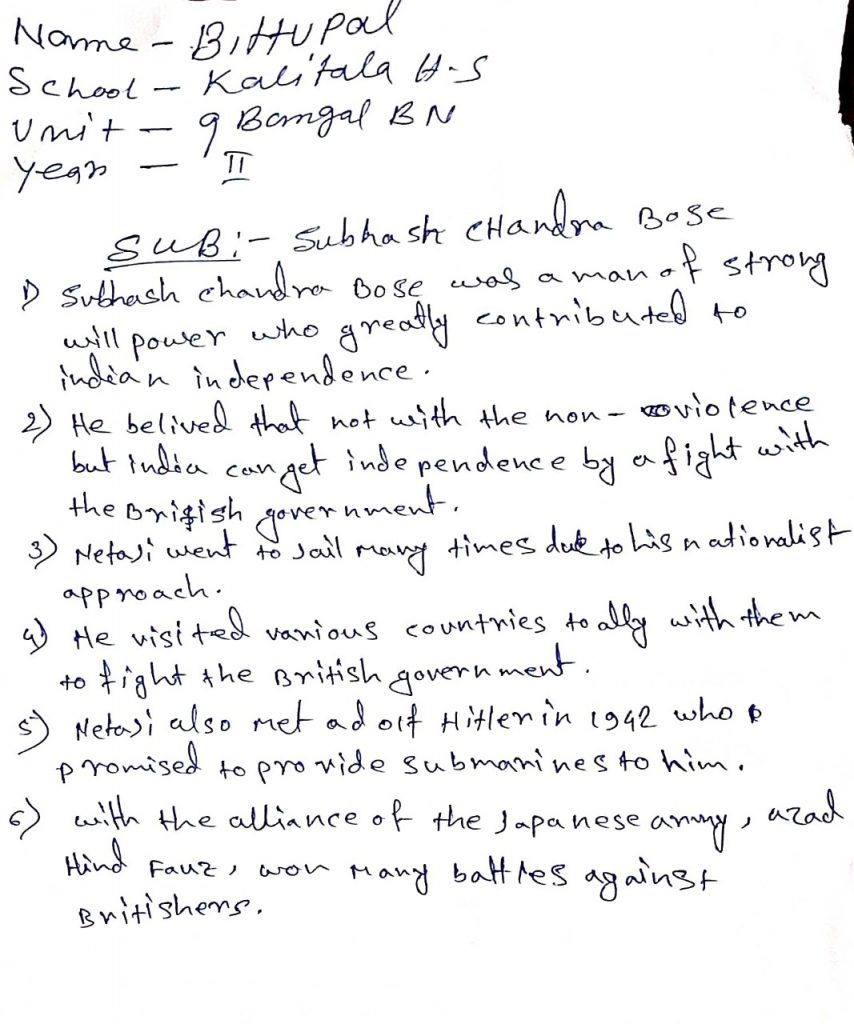 Name - Bittupal
School - Kalitala H-S
Unit - 9 Bangal BN
Year - II
SUB:- Subhash CHandra Bose
1) Subhash chandra Bose was a man of strong
will power who greatly contributed to
indian independence.
2) He belived that not with the non-violence
but india can get independence by a fight with
the British government.
3) Netaji went to Jail many times due to his nationalist
approach.
4) He visited various countries to ally with them
to fight the British government.
5) Netaji also met adolf Hitler in 1942 who
promised to provide submarines to him.
6) with the alliance of the Japanese army, azad
Hind Fauz, won many battles against
Britishers.